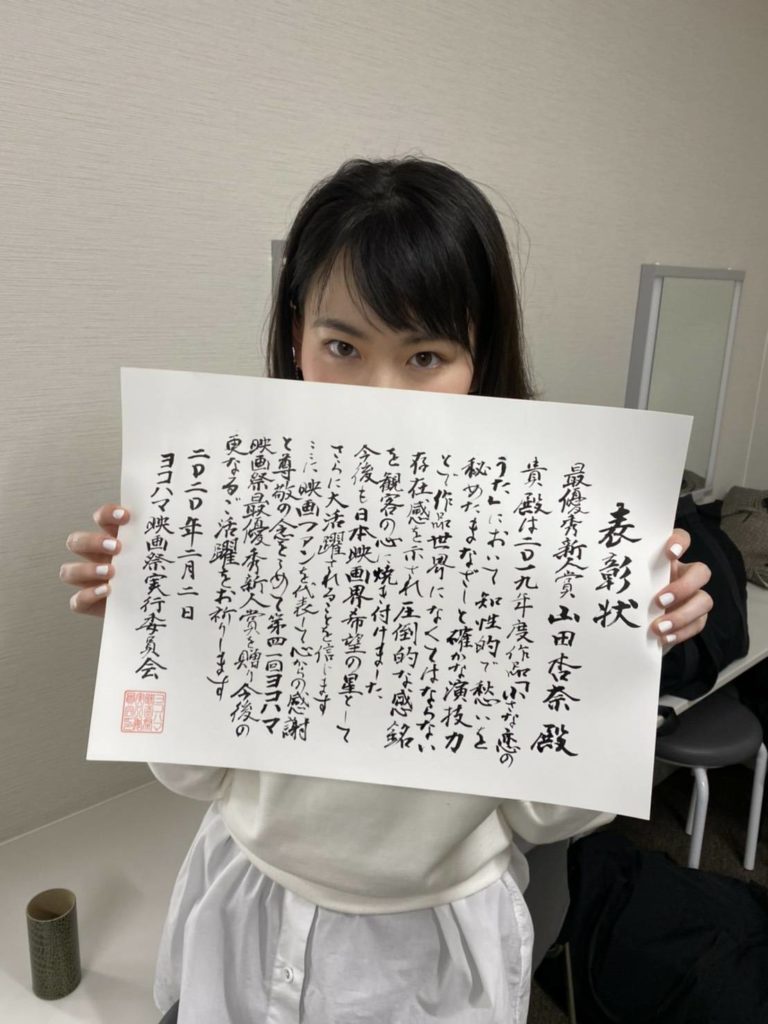 表彰状
最優秀新人賞 山田杏奈 殿
貴殿は二〇一九年度作品「小さな恋の
うた」において知性的で愁いを
秘めたまなざしと確かな演技力
とで作品世界になくてはならない
存在感を示され圧倒的な感銘
を観客の心に焼き付けました
今後も日本映画界希望の星として
さらに大活躍されることを信じます
ここに映画ファンを代表して心からの感謝
と尊敬の念をこめて第四一回ヨコハマ
映画祭最優秀新人賞を贈り今後の
更なるご活躍をお祈りします
二〇二〇年二月二日
ヨコハマ映画祭実行委員会